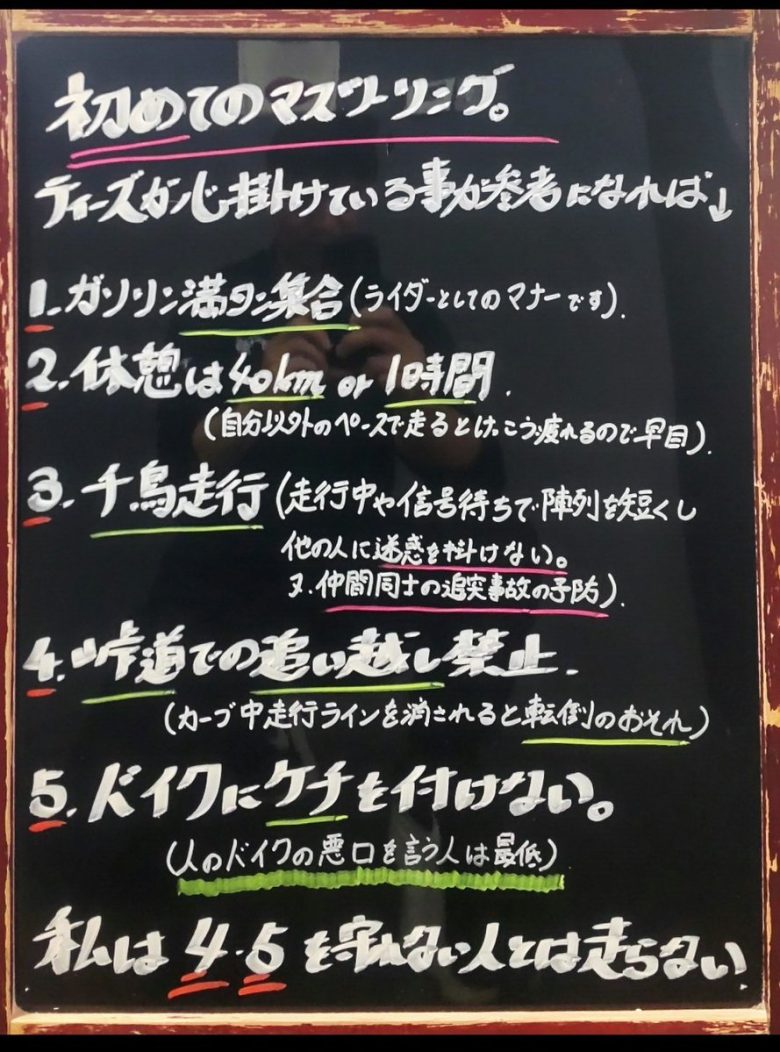 初めてのマスツーリング。
ティーズが心掛けている事が参考になれば↓
1.ガソリン満タン集合(ライダーとしてのマナーです).
2.休憩は40km or 1時間.
(自分以外のペースで走るとけっこう疲れるので早目).
3.千鳥走行(走行中や信号待ちで陣列を短くし
他の人に迷惑を掛けない。
又.仲間同士の追突事故の予防).
4.峠道での追い越し禁止.
(カーブ中走行ラインを消されると転倒のおそれ)
5.バイクにケチを付けない。
(人のバイクの悪口を言う人は最低)
私は4.5を守れない人とは走らない.